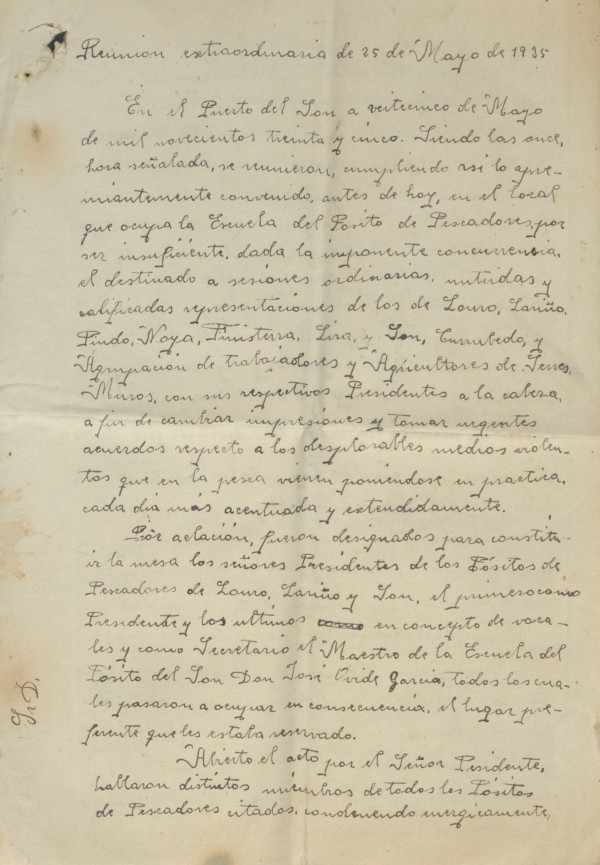 Reunion extraordinaria de 25 de Mayo de 1935
En el Puerto del Son a veiticinco de Mayo
de mil novecientos treinta y cinco. Siendo las once,
hora señalada, se reunieron, cumpliendo asi lo apre-
miantemente convenido, antes de hoy, en el local
que ocupa la Escuela del Posito de Pescadores, por
ser insuficiente, dada la imponente concurrencia,
el destinado a sesiones ordinarias, nutridas y
calificadas representaciones de los de Louro, Lariño,
Pindo, Noya, Finisterra, Lira, y Son, Currubedo, y
Agrupación de trabajadores y Agricultores de Serres,
Muros, con sus respectivos Presidentes a la cabeza,
a fin de cambiar impresiones y tomar urgentes
acuerdos respecto a los desplorables medios violen-
tos que en la pesca vienen poniendose en practica,
cada dia más acentuada y extendidamente.
Por aclación, fueron designados para constitu-
ir la mesa los señores Presidentes de los Pósitos de
Pescadores de Louro, Lariño y Son, el primero como
Presidente y los ultimos como en concepto de voca-
les y como Secretario el Maestro de la Escuela del
Pósito del Son Don José Ovide Garcia, todos los cua-
les pasaron a ocupar en consecuencia, el lugar pre-
ferente que les estaba reservado.
Abierto el acto por el Señor Pesidente,
hablaron distintos miembros de todos los Pósitos
de Pescadores citados, condenendo energicamente,